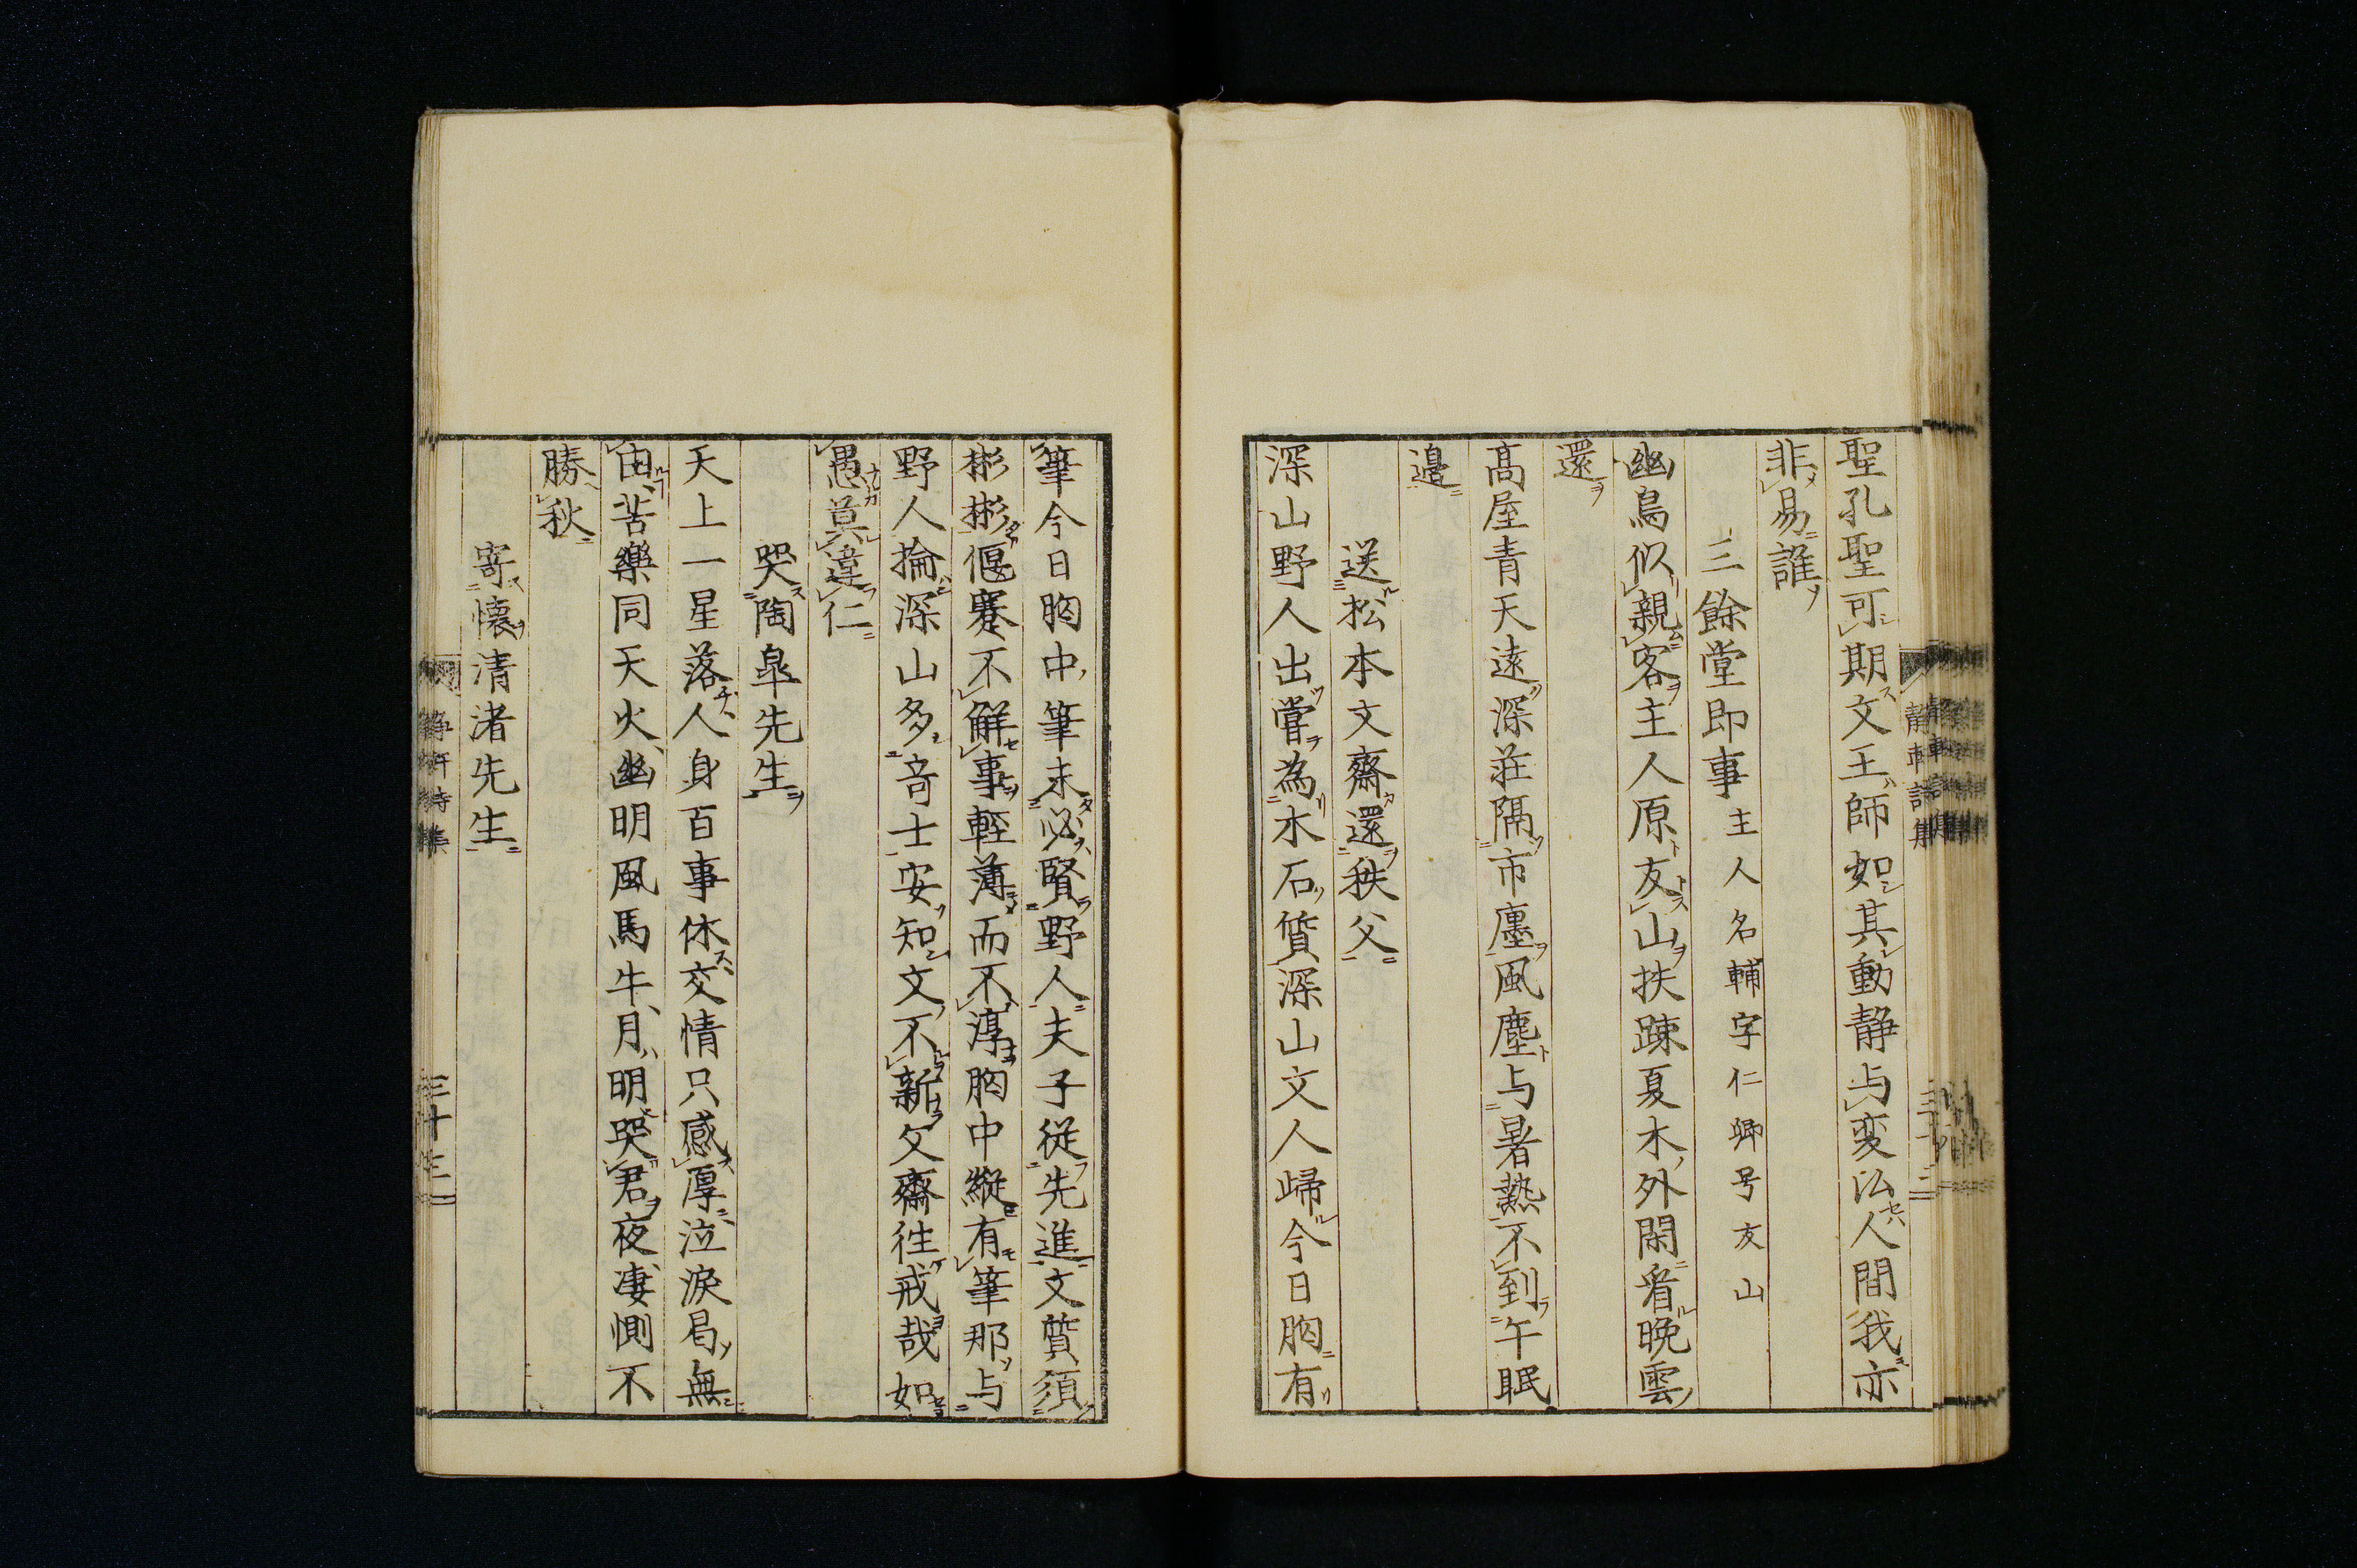 聖孔聖可期文王師如其動静与変法人間我亦
非易誰
三餘堂即事 主人名輔字仁卿号友山
幽鳥似親客主人原友山扶疎夏木外閑看晩雲
還
高屋青天遠深荘隔市廛風塵与暑熱不到午眠
邉
送松本文齋還秩父
深山野人出嘗為木石貭深山文人帰今日胸有
筆今日胸中筆未必賢野人夫子従先進文質須
彬彬偃蹇不解事輕薄而不淳胸中縦有筆那与
野人掄深山多竒士安知文不新文齋徃戒哉如
愚莫違仁
哭陶皐先生
天上一星落人身百事休交情只感厚泣淚曷無
由苦樂同天火幽明風馬牛月明哭君夜凄惻不
勝秋
寄懐清渚先生
三十三